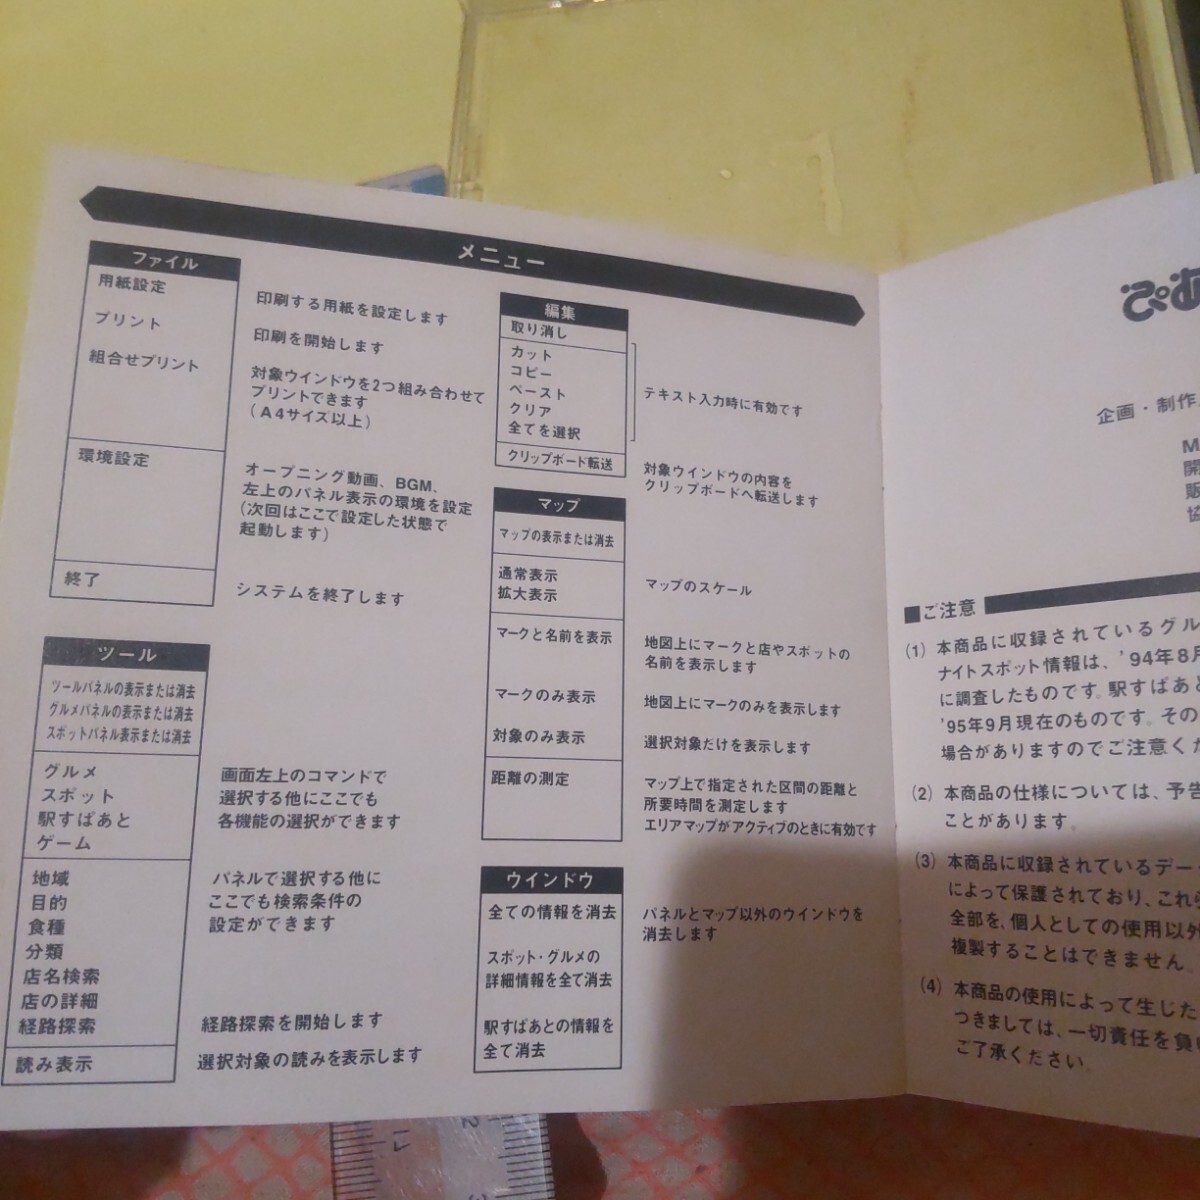 メニュー
ファイル
用紙設定
印刷する用紙を設定します
プリント
印刷を開始します
組合せプリント
対象ウインドウを2つ組み合わせて
プリントできます
(A4サイズ以上)
環境設定
オープニング動画、BGM、
左上のパネル表示の環境を設定
(次回はここで設定した状態で
起動します)
終了
システムを終了します
ツール
ツールパネルの表示または消去
グルメパネルの表示または消去
スポットパネル表示または消去
グルメ
スポット
駅すぱあと
ゲーム
画面左上のコマンドで
選択する他にここでも
各機能の選択ができます
地域
目的
食種
分類
店名検索
店の詳細
経路探索
パネルで選択する他に
ここでも検索条件の
設定ができます
経路探索を開始します
読み表示
選択対象の読みを表示します
編集
取り消し
カット
コピー
ペースト
クリア
全てを選択
テキスト入力時に有効です
クリップボード転送
対象ウインドウの内容を
クリップボードへ転送します
マップ
マップの表示または消去
通常表示
拡大表示
マップのスケール
マークと名前を表示
地図上にマークと店やスポットの
名前を表示します
マークのみ表示
地図上にマークのみを表示します
対象のみ表示
選択対象だけを表示します
距離の測定
マップ上で指定された区間の距離と
所要時間を測定します
エリアマップがアクティブのときに有効です
ウインドウ
全ての情報を消去
パネルとマップ以外のウインドウを
消去します
スポット・グルメの
詳細情報を全て消去
駅すぱあとの情報を
全て消去
ぴあ
企画・制作
M
開
販
協
■ご注意
(1) 本商品に収録されているグル
ナイトスポット情報は、'94年8月
に調査したものです。駅すぱあと
'95年9月現在のものです。その
場合がありますのでご注意くだ
(2) 本商品の仕様については、予告
ことがあります。
(3) 本商品に収録されているデー
によって保護されており、これら
全部を、個人としての使用以外
複製することはできません。
(4) 本商品の使用によって生じた
つきましては、一切責任を負
ご了承ください。
2
3